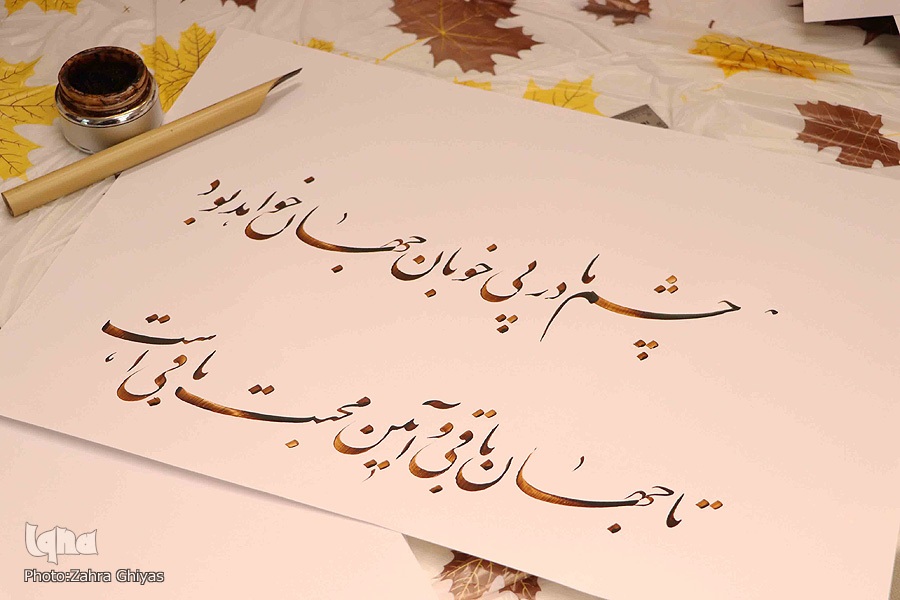 چشم ما در پی خوبان جهان خواهد بود
تا جهان باقی و آیین محبت باقی است
Iqna
Photo:Zahra Ghiyas